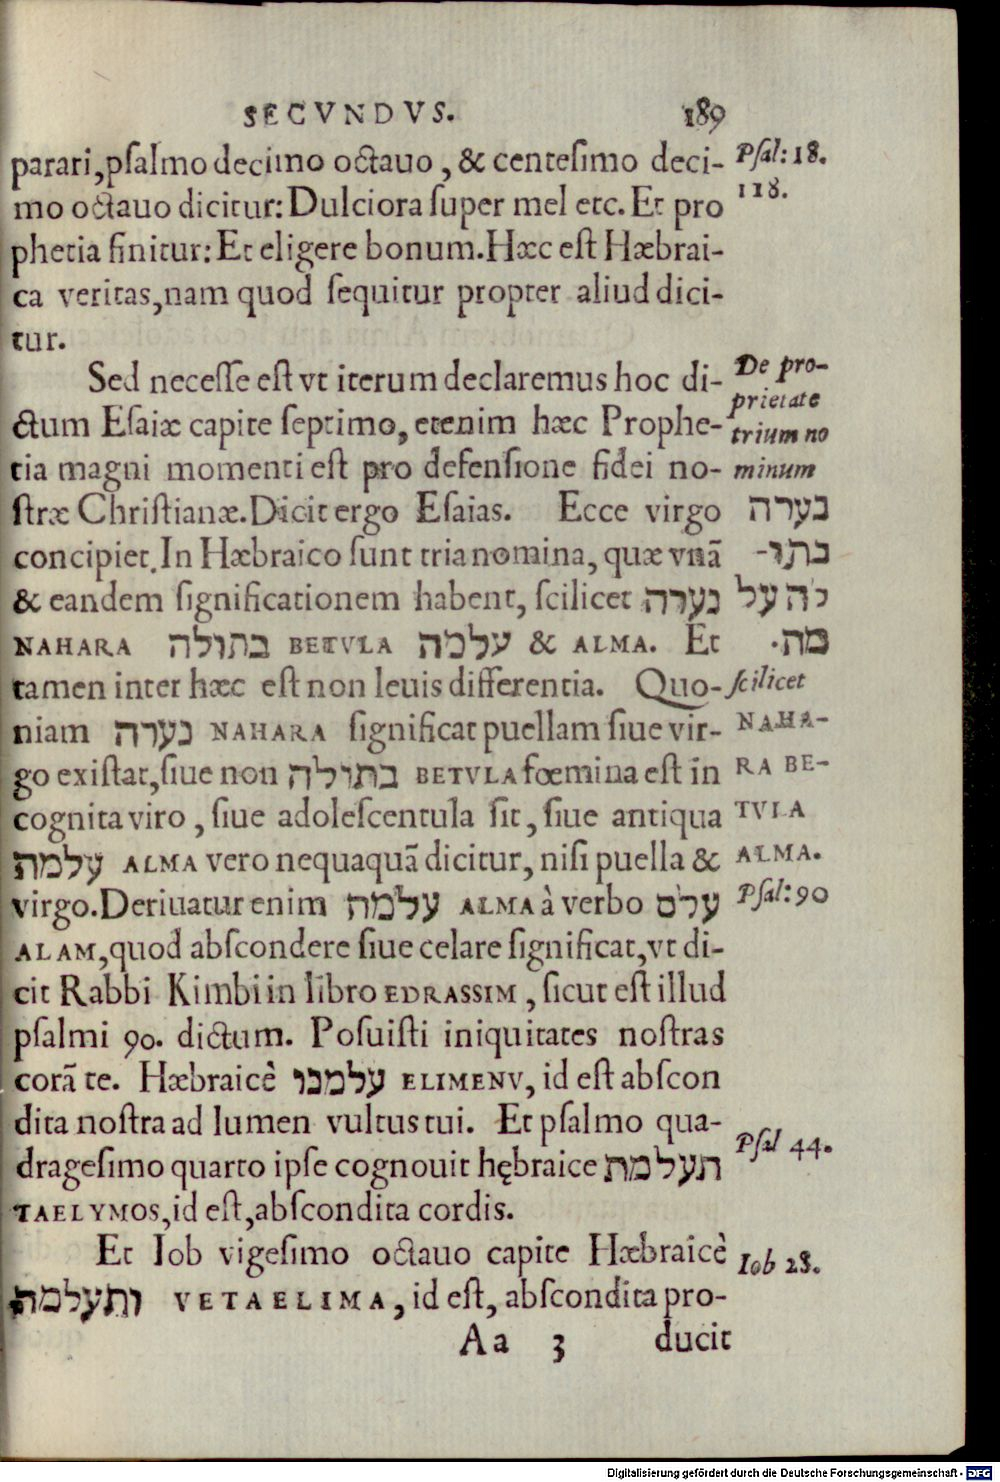 SECVNDVS. 189
parari,psalmo decimo octauo, & centesimo deci- Psal:18.
mo octauo dicitur: Dulciora super mel etc. Et pro 118.
phetia finitur: Et eligere bonum. Hæc est Hæbrai-
ca veritas,nam quod sequitur propter aliud dici-
tur.
Sed necesse est vt iterum declaremus hoc di- De pro-
ctum Esaiæ capite septimo, etenim hæc Prophe- prietate
tia magni momenti est pro defensione fidei no- trium no
stræ Christianæ. Dicit ergo Esaias. Ecce virgo minum
concipiet. In Hæbraico sunt tria nomina, quæ vnã נערה
& eandem significationem habent, scilicet נערה בתו-
NAHARA בתולה BETVLA עלמה & ALMA. Et לה על
tamen inter hæc est non leuis differentia. Quo- מה.
niam נערה NAHARA significat puellam siue vir- scilicet
go existat,siue non בתולה BETVLA fœmina est in NAHA-
cognita viro, siue adolescentula sit, siue antiqua RA BE-
עלמה ALMA vero nequaquã dicitur, nisi puella & TVLA
virgo. Deriuatur enim עלמה ALMA à verbo עלם ALMA.
ALAM,quod abscondere siue celare significat,vt di- Psal:90
cit Rabbi Kimbi in libro EDRASSIM, sicut est illud
psalmi 90. dictum. Posuisti iniquitates nostras
corã te. Hæbraicè עלמנו ELIMENV, id est abscon
dita nostra ad lumen vultus tui. Et psalmo qua-
dragesimo quarto ipse cognouit hębraice תעלמת Psal 44.
TAELYMOS,id est,abscondita cordis.
Et Iob vigesimo octauo capite Hæbraicè Iob 28.
ותעלמה VETAELIMA, id est, abscondita pro-
Aa 3 ducit
Digitalisierung gefördert durch die Deutsche Forschungsgemeinschaft - DFG